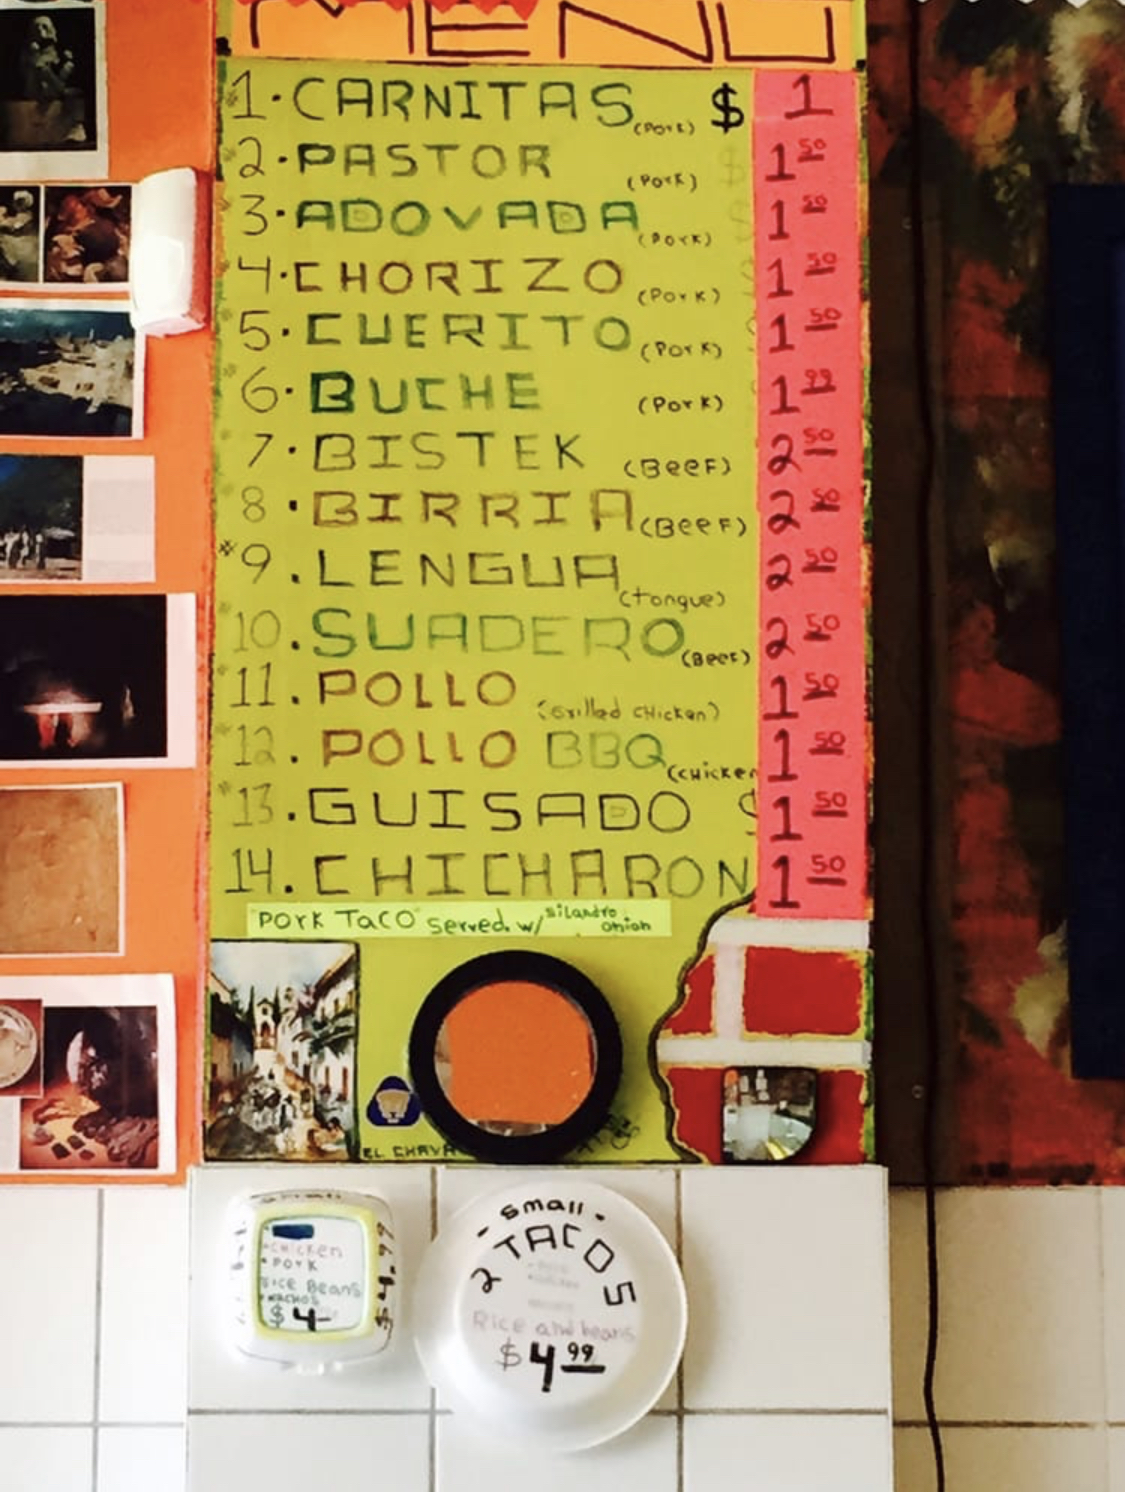 MENU
1. CARNITAS (Pork) $ 1
2. PASTOR (Pork) $ 1 50
3. ADOVADA (Pork) $ 1 50
4. CHORIZO (Pork) $ 1 50
5. CUERITO (Pork) $ 1 50
6. BUCHE (Pork) 1 99
7. BISTEK (BeeF) 2 50
8. BIRRIA (BeeF) 2 50
*9. LENGUA (tongue) 2 50
*10. SUADERO (BeeF) 2 50
*11. POLLO (Grilled CHicken) 1 50
*12. POLLO BBQ (CHicken 1 50
*13. GUISADO $ 1 50
14. CHICHARON 1 50
"PORK TACO" Served w/ Silantro onion
EL CHAVA
CHICKEN
PORK
RICE BeanS
NACHOS
$ 4
$4.99
- Small -
2 TACOS
Rice and beans
$ 4 99